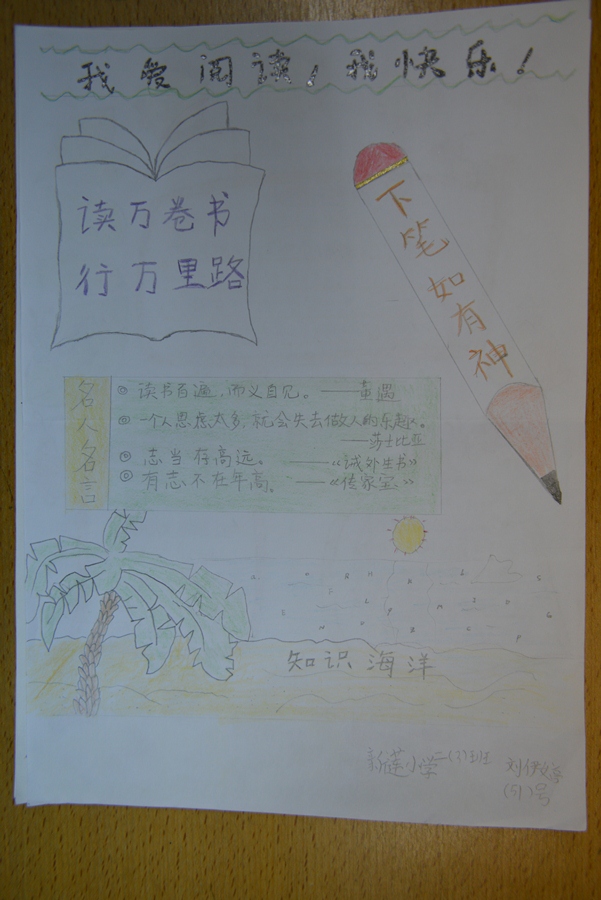 我爱阅读，我快乐！
读万卷书
行万里路
下笔如有神
名人名言
◎ 读书百遍，而义自见。——董遇
◎ 一个人思虑太多，就会失去做人的乐趣。
——莎士比亚
◎ 志当存高远。——《诫外生书》
◎ 有志不在年高。——《传家宝》
知识海洋
新莲小学
刘伊
号